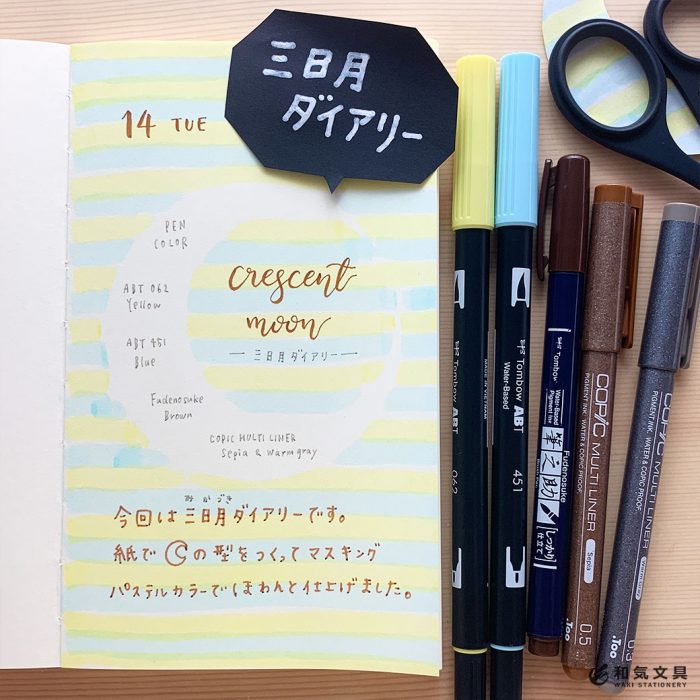 三日月
ダイアリー
14 TUE
PEN
COLOR
ABT 062
Yellow
ABT 451
Blue
Fudenosuke
Brown
COPIC MULTI LINER
Sepia & Warm gray
crescent
moon
三日月ダイアリー
みかづき
今回は三日月ダイアリーです。
紙での型をつくってマスキング
パステルカラーでほわんと仕上げました。
MADE IN VIETNAM
Tombow ABT
062
Tombow ABT
Water-Based
451
Tombow
Water-Based
Pigment Ink
Fudenosuke
筆之助
しっかり
仕立て
COPIC MULTI LINER
PIGMENT INK, WATER & COPIC PROOF
Sepia
0.5
.Too
COPIC MULTI LINER
PIGMENT INK, WATER & COPIC PROOF
0.3
.Too
和気文具
WAKI STATIONERY